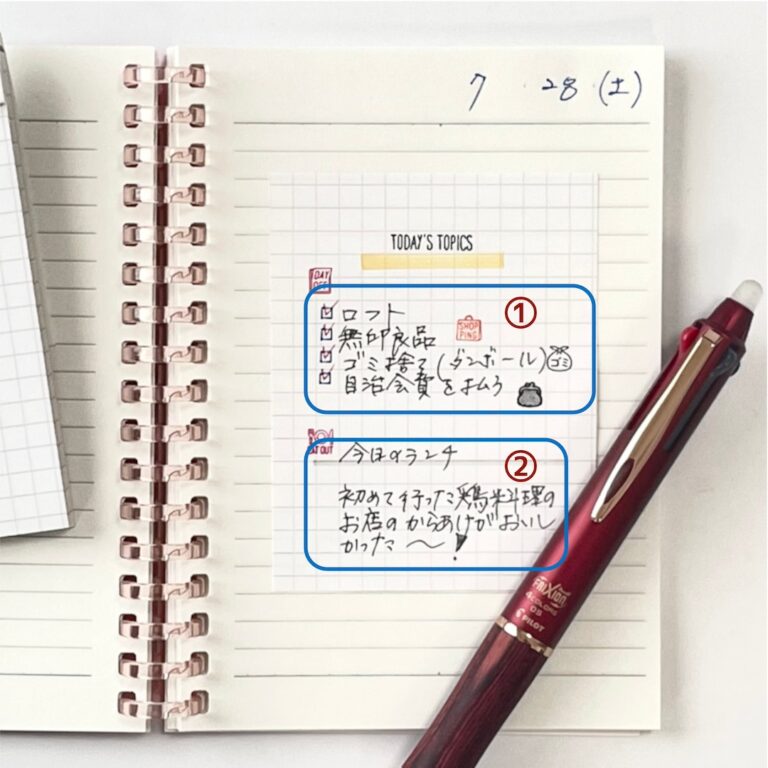 7 28 (土)
TODAY'S TOPICS
DAY OFF
①
ロフト
無印良品
SHOPPING
ゴミ捨て(ダンボール)
ゴミ
自治会費を払う
EAT OUT
②
今日のランチ
初めて行った鶏料理の
お店のからあげがおいし
かった〜!
FRIXION
4 COLORS
05
PILOT